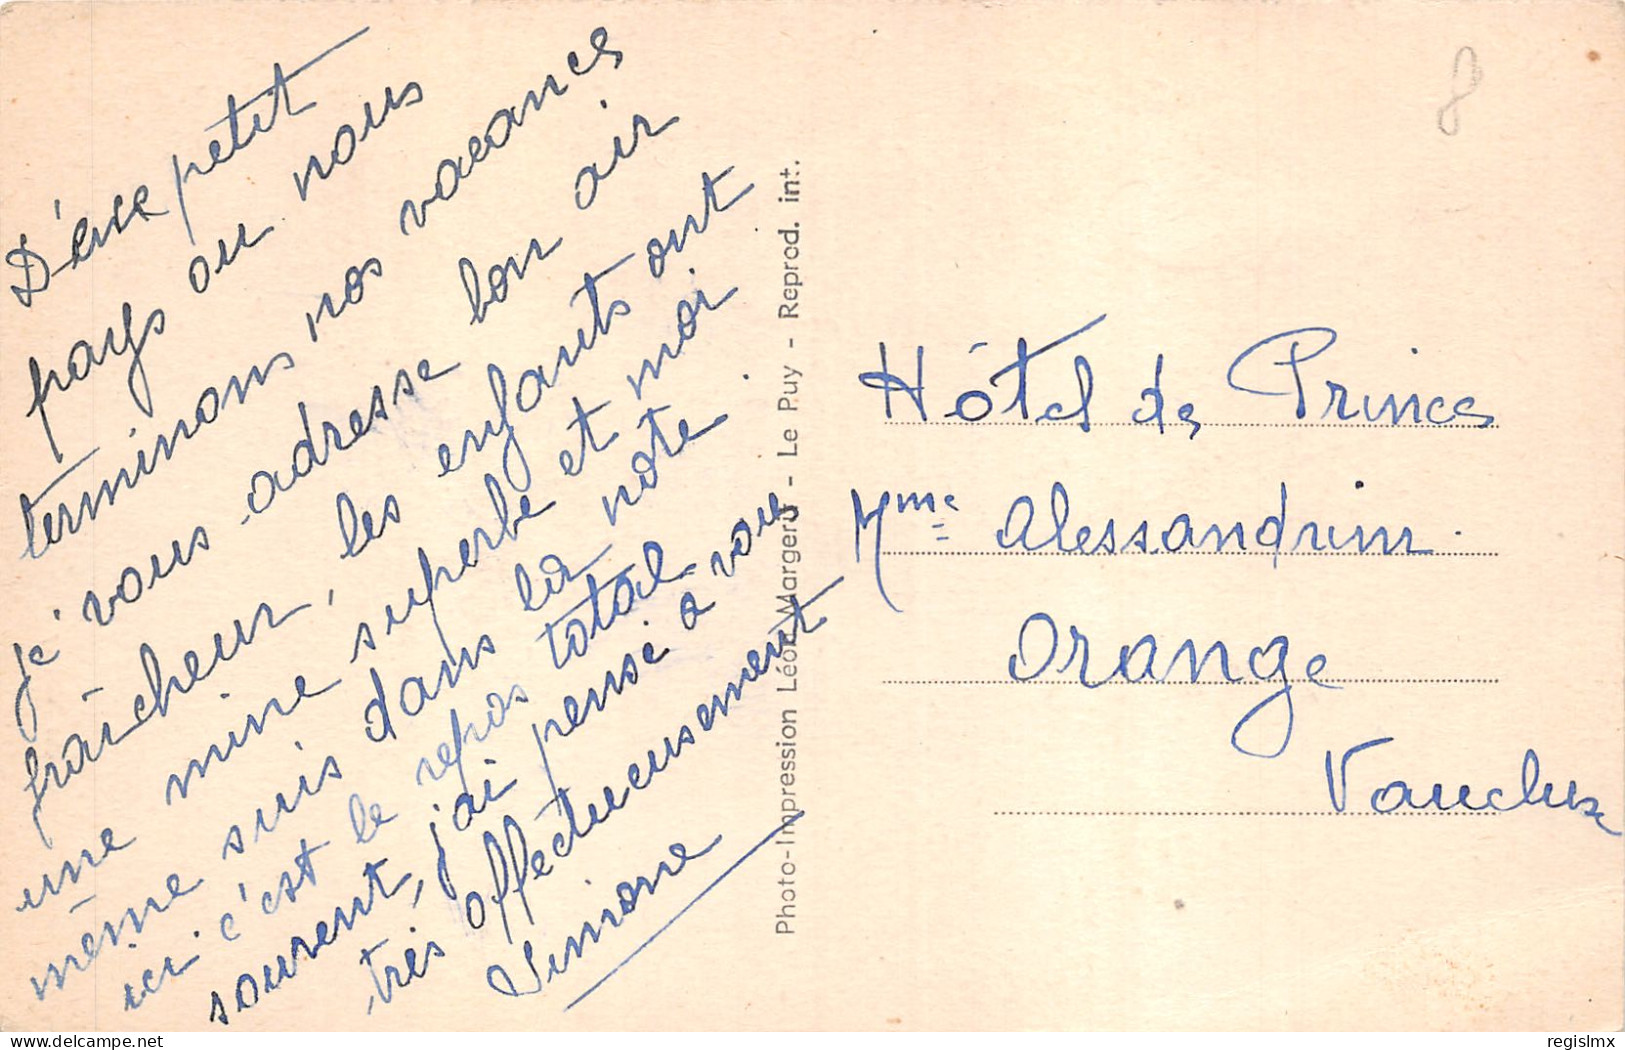 D'un petit
pays ou nous
terminons nos vacances
je vous adresse bon air
fraîcheur, les enfants ont
une mine superbe et moi
même suis dans la note.
ici c'est le repos total
souvent, j'ai pensé à vous
très affectueusement
Simone
Photo-Impression Léon Margerit - Le Puy - Reprod. int.
8
Hôtel de Princes
Mme Alessandrini
Orange
Vaucluse
delcampe.net
regislmx